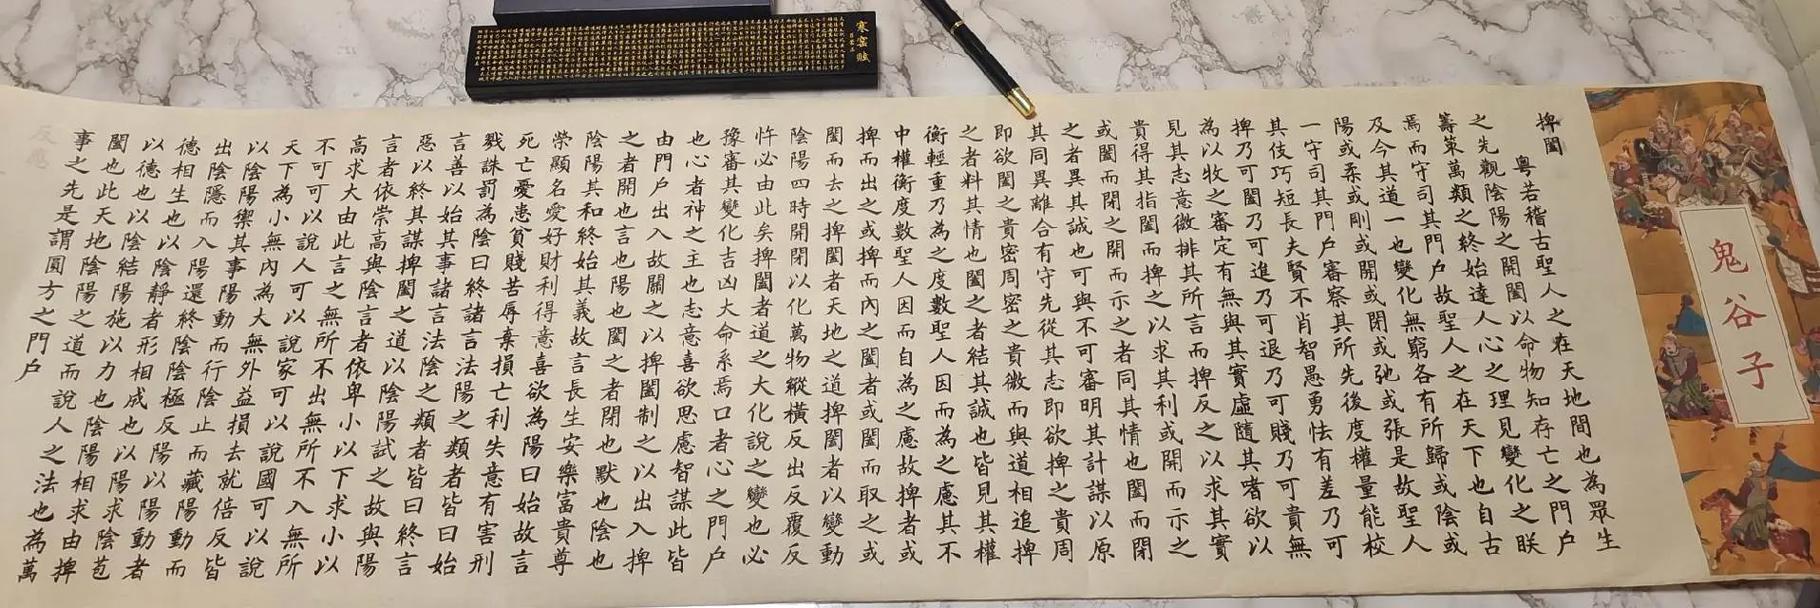 鬼谷子
捭闔
粵若稽古聖人之在天地間也為眾生
之先觀陰陽之開闔以命物知存亡之門戶
籌策萬類之終始達人心之理見變化之朕
焉而守司其門戶故聖人之在天下也自古
及今其道一也變化無窮各有所歸或陰或
陽或柔或剛或開或閉或弛或張是故聖人
一守司其門戶審察其所先後度權量能校
其伎巧短長夫賢不肖智愚勇怯有差乃可
捭乃可闔乃可進乃可退乃可賤乃可貴無
為以牧之審定有無與其實虛隨其嗜欲以
見其志意微排其所言而捭反之以求其實
貴得其指闔而捭之以求其利或開而示之
或闔而閉之開而示之者同其情也闔而閉
之者異其誠也可與不可審明其計謀以原
其同異離合有守先從其志即欲捭之貴周
即欲闔之貴密周密之貴微而與道相追捭
之者料其情也闔之者結其誠也皆見其權
衡輕重乃為之度數聖人因而為之慮其不
中權衡度數聖人因而自為之慮故捭者或
捭而出之或捭而內之闔者或闔而取之或
闔而去之捭闔者天地之道捭闔者以變動
陰陽四時開閉以化萬物縱橫反出反覆反
忤必由此矣捭闔者道之大化說之變也必
豫審其變化吉凶大命系焉口者心之門戶
也心者神之主也志意喜欲思慮智謀此皆
由門戶出入故關之以捭闔制之以出入捭
之者開也言也陽也闔之者閉也默也陰也
陰陽其和終始其義故言長生安樂富貴尊
榮顯名愛好財利得意喜欲為陽曰始故言
死亡憂患貧賤苦辱棄損亡利失意有害刑
戮誅罰為陰曰終諸言法陽之類者皆曰始
言善以始其事諸言法陰之類者皆曰終言
惡以終其謀捭闔之道以陰陽試之故與陽
言者依崇高與陰言者依卑小以下求小以
高求大由此言之無所不出無所不入無所
不可可以說人可以說家可以說國可以說
天下為小無內為大無外益損去就倍反皆
以陰陽禦其事陽動而行陰止而藏陽動而
出陰隱而入陽還終陰陰極反陽以陽動者
德相生也以陰靜者形相成也以陽求陰苞
以德也以陰結陽施以力也陰陽相求由捭
闔也此天地陰陽之道而說人之法也為萬
事之先是謂圓方之門戶
反應
寒窑賦